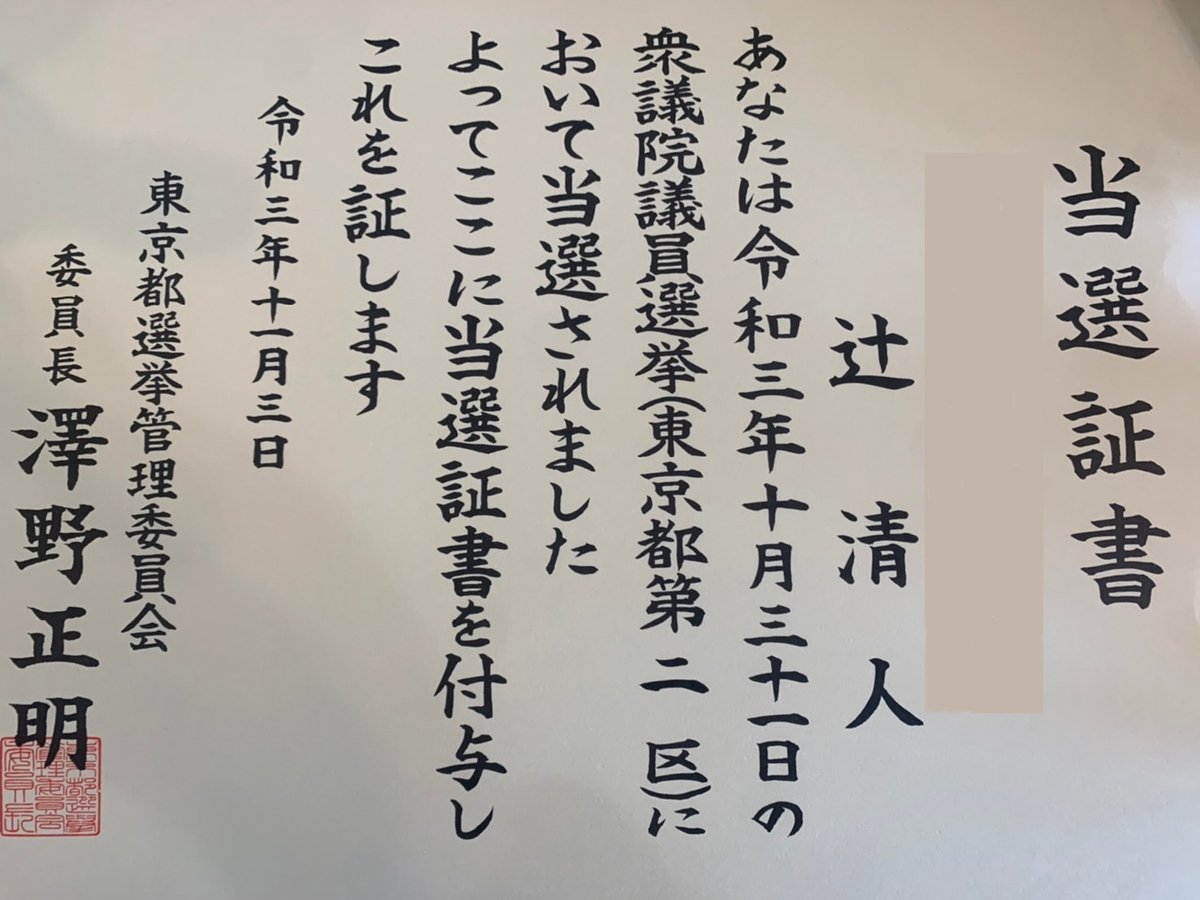 当選証書
辻清人
あなたは令和三年十月三十一日の
衆議院議員選挙(東京都第二区)に
おいて当選されました
よってここに当選証書を付与し
これを証します
令和三年十一月三日
東京都選挙管理委員会
委員長澤野正明